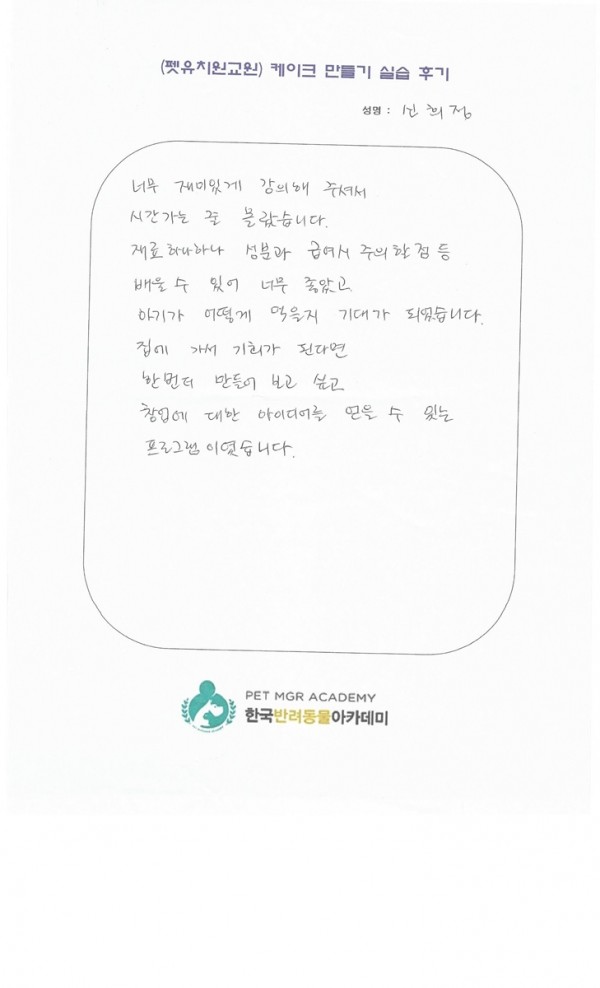 (펫유치원교원) 케이크 만들기 실습 후기
성명 : 신희정
너무 재미있게 강의해 주셔서
시간가는 줄 몰랐습니다.
재료 하나하나 성분과 급여시 주의할 점 등
배울 수 있어 너무 좋았고
아기가 어떻게 먹을지 기대가 되었습니다.
집에 가서 기회가 된다면
한번더 만들어 보고 싶고
창업에 대한 아이디어를 얻을 수 있는
프로그램이였습니다.
PET MGR ACADEMY
한국반려동물아카데미